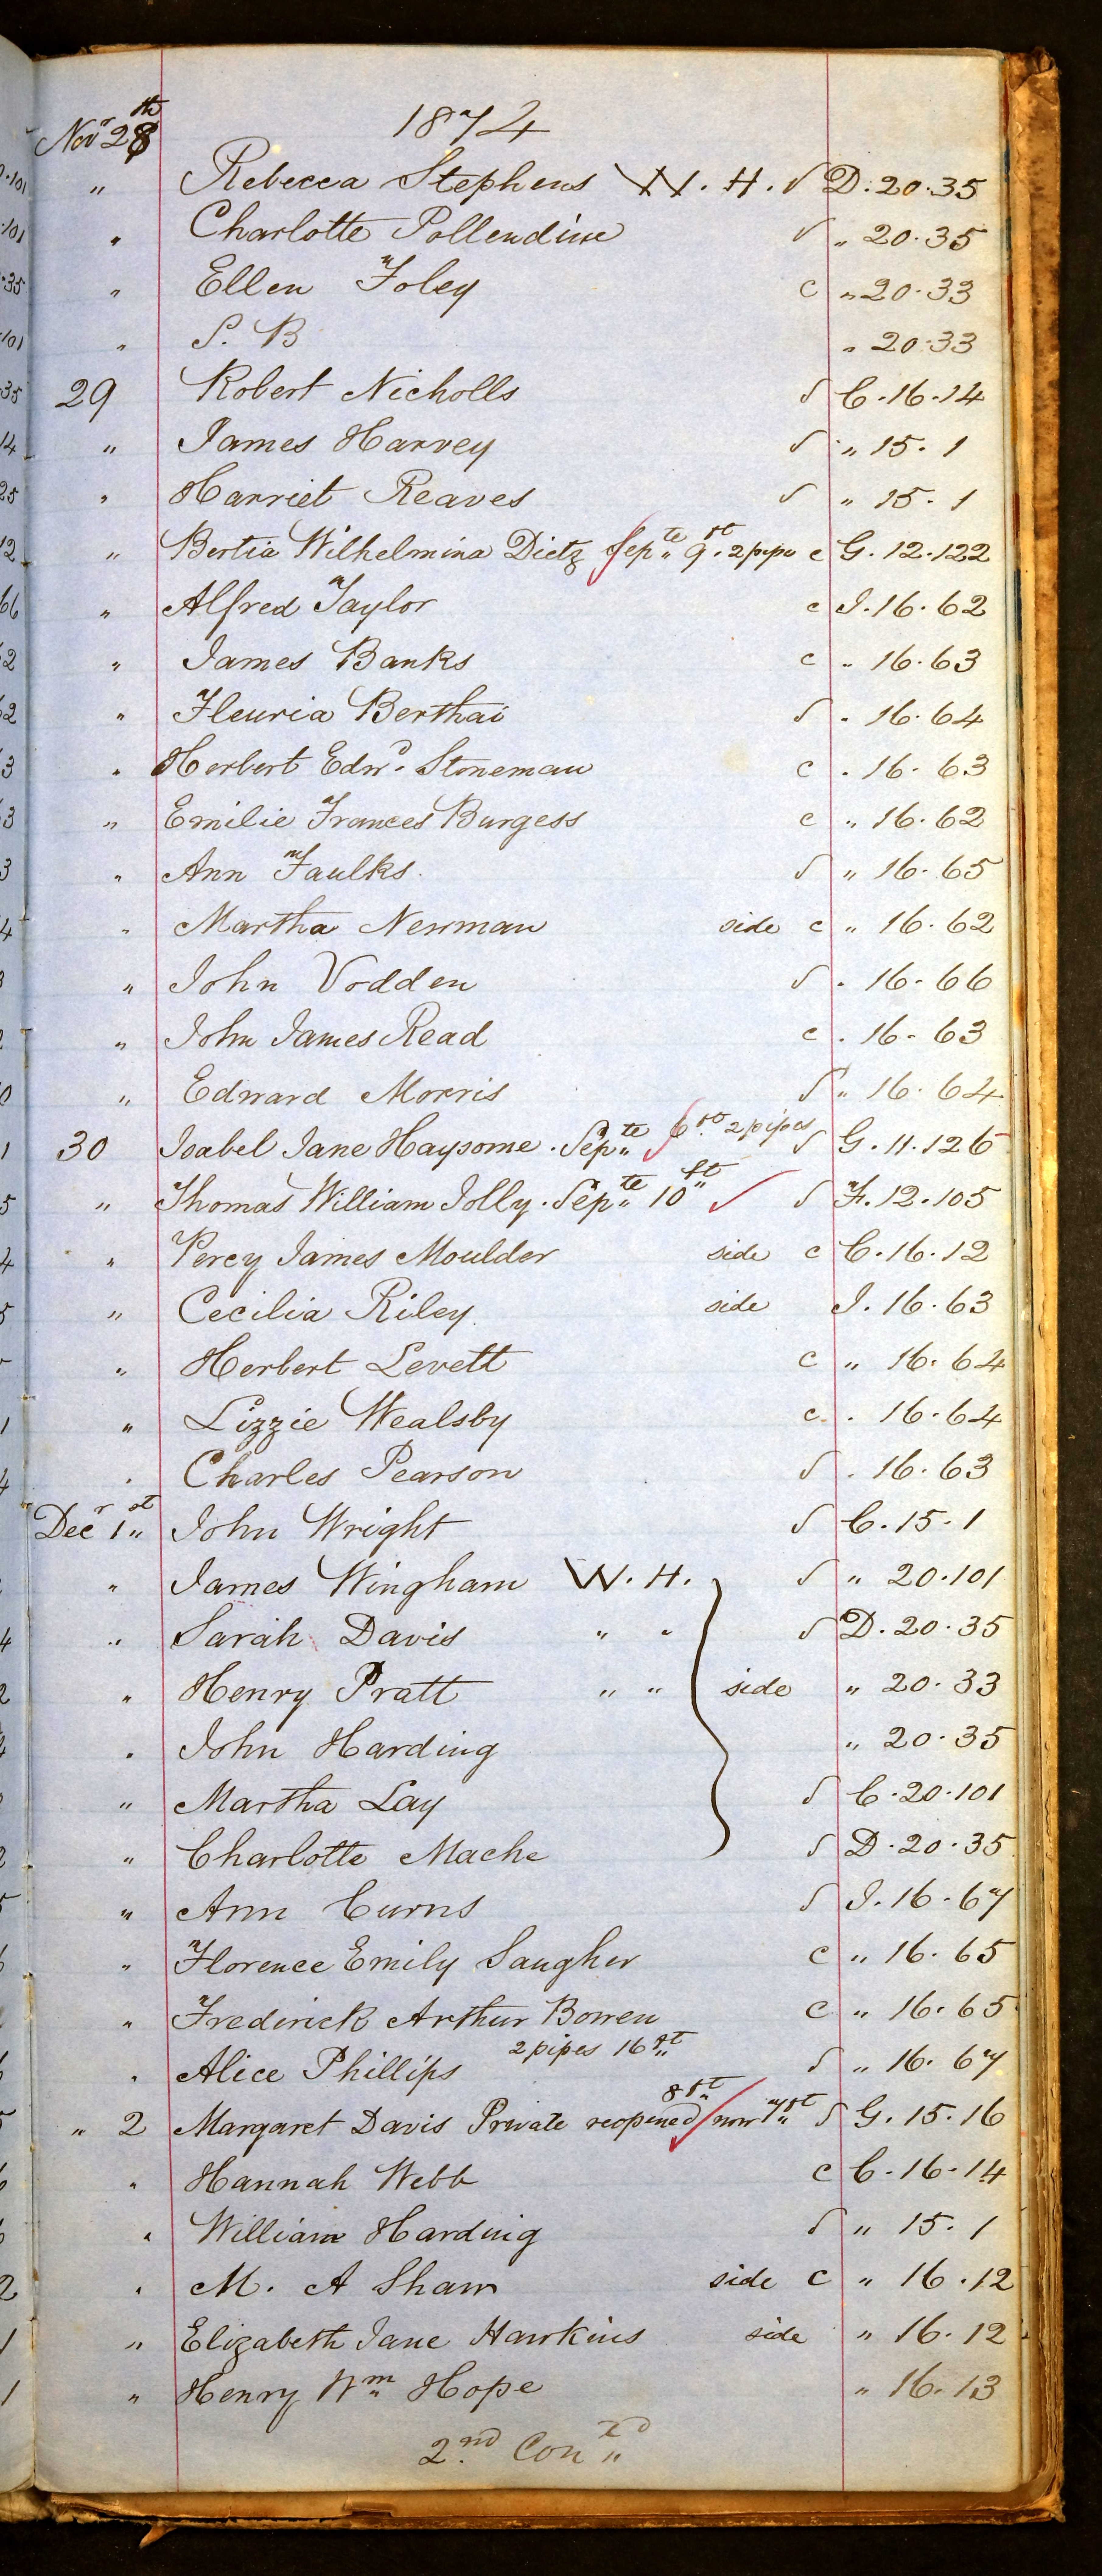 1874
Novr 28th
" Rebecca Stephens W. H. √ D. 20.35
" Charlotte Pollendine √ " 20.35
" Ellen Foley c " 20.33
" S. B " 20.33
29 Robert Nicholls S C. 16.14
" James Harvey S " 15. 1
" Harriet Reaves S " 15. 1
" Bertia Wilhelmina Dietz Septe 9ft 2 pipe c G. 12.122
" Alfred Taylor c I. 16.62
" James Banks c " 16.63
" Fleuria Berthai S " 16.64
" Herbert Edwd. Stoneman c " 16.63
" Emilie Frances Burgess c " 16.62
" Ann Faulks. S " 16.65
" Martha Newman side c " 16.62
" John Vodden S " 16.66
" John James Read c " 16.63
" Edward Morris S " 16.64
30 Isabel Jane Haysome. Septe 6ft 2 pipes S G. 11.126
" Thomas William Jolly. Septe 10ft S F. 12.105
" Percy James Moulder side c C. 16.12
" Cecilia Riley side I. 16.63
" Herbert Levett c " 16.64
" Lizzie Wealsby c " 16.64
" Charles Pearson S " 16.63
Decr 1st John Wright S C. 15. 1
" James Wingham W. H. S " 20.101
" Sarah Davis " " S D. 20.35
" Henry Pratt " " side " 20.33
" John Harding " 20.35
" Martha Lay S C. 20.101
" Charlotte Mache S D. 20.35
" Ann Curns S I. 16.67
" Florence Emily Saugher c " 16.65
" Frederick Arthur Bowen c " 16.65
" Alice Phillips S " 16.67
2 pipes 16ft 8ft
" 2 Margaret Davis Private reopened now 7ft S G. 15.16
" Hannah Webb c C. 16.14
" William Harding S " 15. 1
" M. A Shaw side c " 16.12
" Elizabeth Jane Hawkins side " 16.12
" Henry Wm Hope " 16.13
2nd Con"